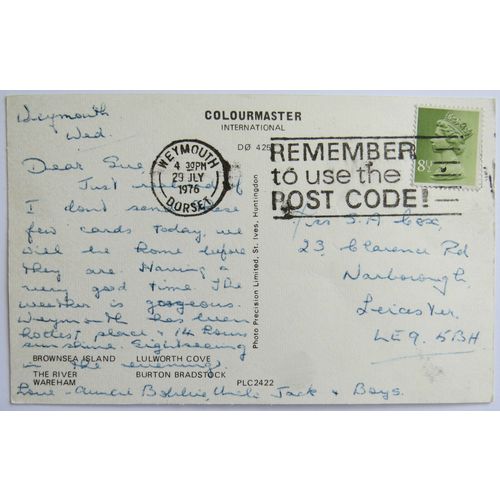 Weymouth
Wed.
COLOURMASTER
INTERNATIONAL
DØ 425
WEYMOUTH
4 30PM
29 JLY
1976
DORSET
REMEMBER
to use the
POST CODE!
8½
Dear Sue
Just in of
I don't send these
few cards today, we
will be home before
they are. Having a
very good time. The
weather is gorgeous.
Weymouth has been
hottest place & 14 hours
sunshine. Sightseeing
in the evening.
Love - Auntie Bobbie, Uncle Jack & Boys.
Miss S.A. Cox,
23, Clarence Rd
Narborough,
Leicester.
LE9. 5BH
Photo Precision Limited, St. Ives, Huntingdon
BROWNSEA ISLAND LULWORTH COVE
THE RIVER BURTON BRADSTOCK
WAREHAM
PLC2422